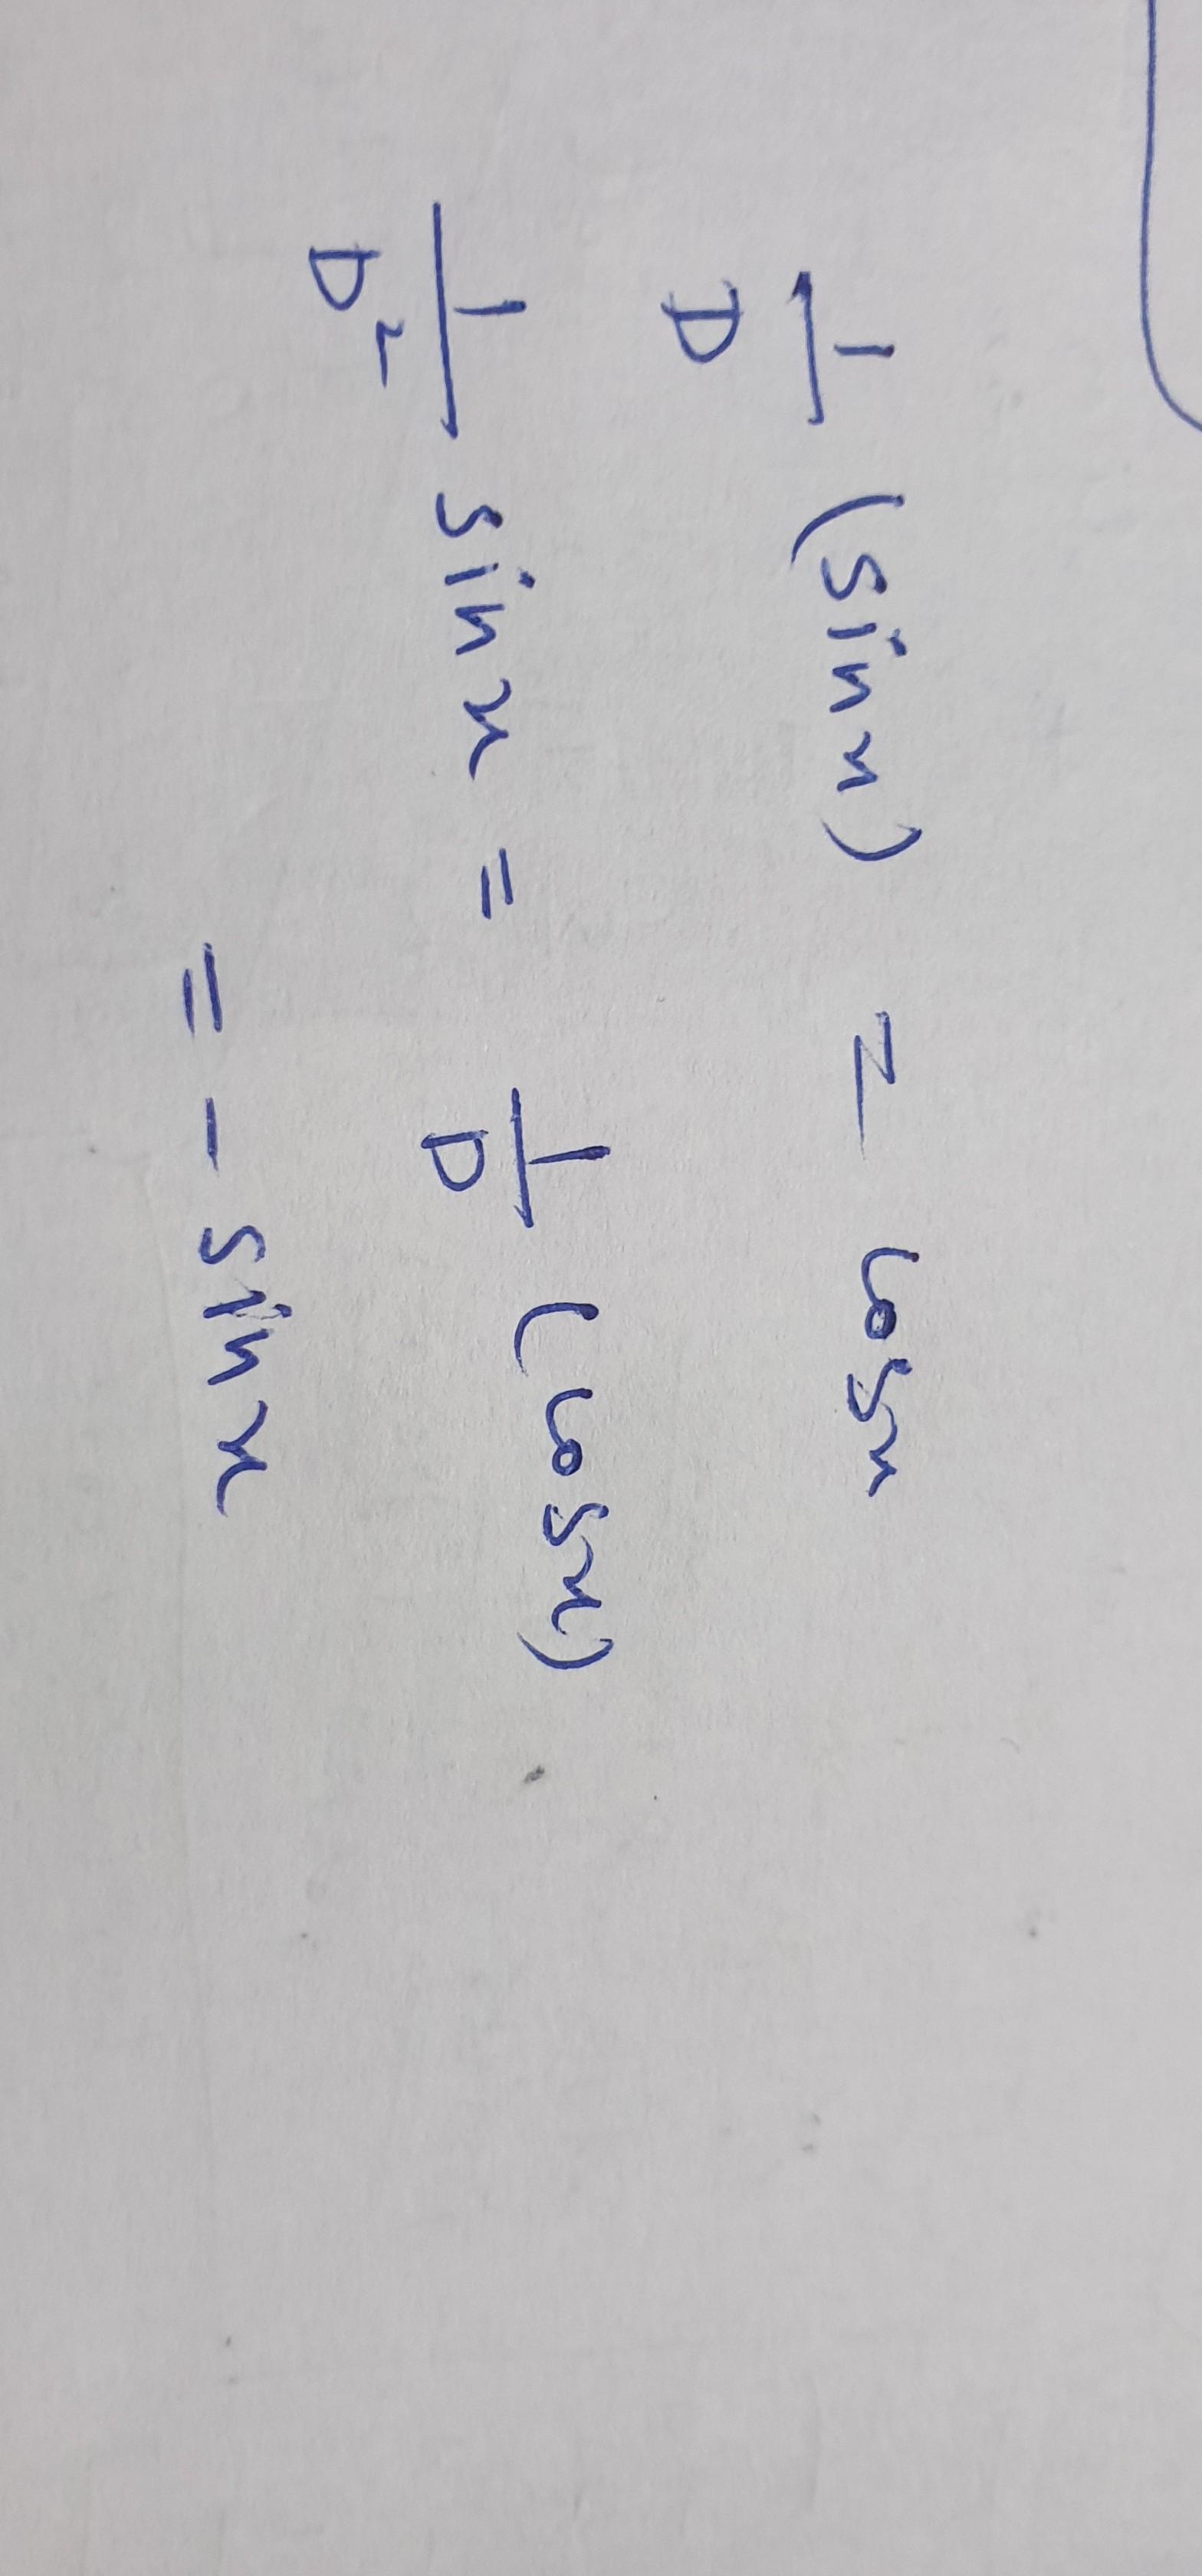 1/D (sin x) = cosx
1/D² sin x = 1/D (cosx)
= - sin x